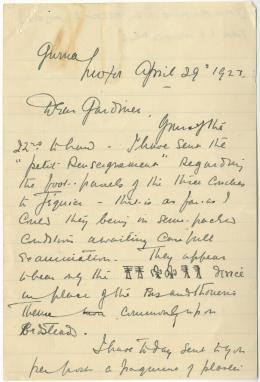 Gurna
Luxor April 29th 192
Dear Gardiner,
Yours of the
22nd to hand - I have sent the
"petit Renseignement" regarding
the foot-panels of the three couches
to Jéquier - that is as far as I
could they being in semi-packed
condition awaiting carefull
examination. They appear
to bear only the device
in place of the Bes and Thoueris
Theme commonly upon
Bedstead.
I have to day sent to you
per post a fragment of plaster